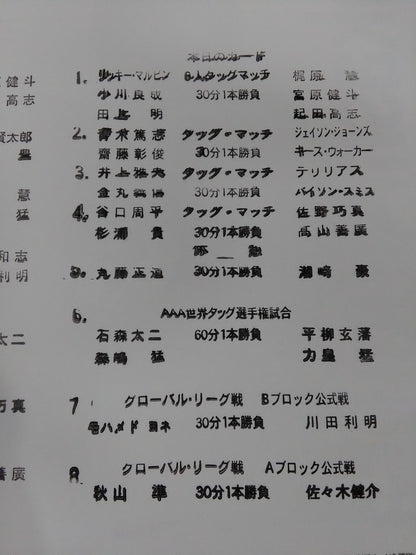 健斗
高志
賢太郎
慧
猛
和志
利明
太二
巧真
善廣
本日のカード
1. リッキー・マルビン 6人タッグマッチ 梶原 慧
小川良成 30分1本勝負 宮原健斗
田上 明 起田高志
2. 青木篤志 タッグ・マッチ ジェイソン・ジョーンズ
齋藤彰俊 30分1本勝負 キース・ウォーカー
3. 井上雅央 タッグ・マッチ テリリアス
金丸義信 30分1本勝負 バイソン・スミス
4. 谷口周平 タッグ・マッチ 佐野巧真
杉浦 貴 30分1本勝負 高山善廣
休 憩
5. 丸藤正道 30分1本勝負 潮﨑 豪
6. AAA世界タッグ選手権試合
石森太二 60分1本勝負 平柳玄藩
森嶋 猛 力皇 猛
7 グローバル・リーグ戦 Bブロック公式戦
モハメド ヨネ 30分1本勝負 川田利明
8. グローバル・リーグ戦 Aブロック公式戦
秋山 準 30分1本勝負 佐々木健介